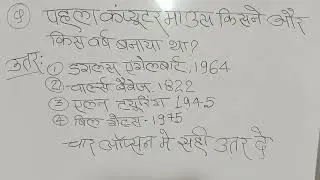 Q पहला कंप्यूटर माउस किसने और
किस वर्ष बनाया था?
उत्तर:
① डगलस एंगेलबार्ट, 1964
② चार्ल्स बैबेज, 1822
③ एलन ट्यूरिंग 1945
④ बिल गेट्स - 1975
चार ऑप्सन मे सही उतर दे